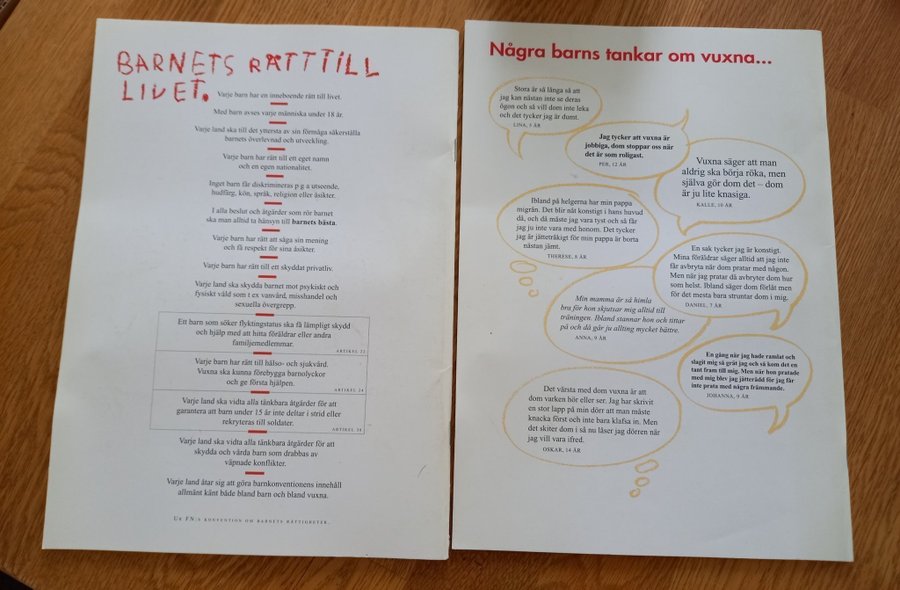 BARNETS RÄTT TILL
LIVET.
Varje barn har en inneboende rätt till livet.
Med barn avses varje människa under 18 år.
Varje land ska till det yttersta av sin förmåga säkerställa
barnets överlevnad och utveckling.
Varje barn har rätt till ett eget namn
och en egen nationalitet.
Inget barn får diskrimineras p g a utseende,
hudfärg, kön, språk, religion eller åsikter.
I alla beslut och åtgärder som rör barnet
ska man alltid ta hänsyn till barnets bästa.
Varje barn har rätt att säga sin mening
och få respekt för sina åsikter.
Varje barn har rätt till ett skyddat privatliv.
Varje land ska skydda barnet mot psykiskt och
fysiskt våld som t ex vanvård, misshandel och
sexuella övergrepp.
Ett barn som söker flyktingstatus ska få lämpligt skydd
och hjälp med att hitta föräldrar eller andra
familjemedlemmar.
ARTIKEL 22
Varje barn har rätt till hälso- och sjukvård.
Vuxna ska kunna förebygga barnolyckor
och ge första hjälpen.
ARTIKEL 24
Varje land ska vidta alla tänkbara åtgärder för att
garantera att barn under 15 år inte deltar i strid eller
rekryteras till soldater.
ARTIKEL 38
Varje land ska vidta alla tänkbara åtgärder för att
skydda och vårda barn som drabbas av
väpnade konflikter.
Varje land åtar sig att göra barnkonventionens innehåll
allmänt känt både bland barn och bland vuxna.
UR FN:S KONVENTION OM BARNETS RÄTTIGHETER.
Några barns tankar om vuxna...
Stora är så långa så att
jag kan nästan inte se deras
ögon och så vill dom inte leka
och det tycker jag är dumt.
LINA, 5 ÅR
Jag tycker att vuxna är
jobbiga, dom stoppar oss när
det är som roligast.
PER, 12 ÅR
Vuxna säger att man
aldrig ska börja röka, men
själva gör dom det – dom
är ju lite knasiga.
KALLE, 10 ÅR
Ibland på helgerna har min pappa
migrän. Det blir nåt konstigt i hans huvud
då, och då måste jag vara tyst och så får
jag ju inte vara med honom. Det tycker
jag är jättetråkigt för min pappa är borta
nästan jämt.
THERESE, 8 ÅR
En sak tycker jag är konstigt.
Mina föräldrar säger alltid att jag inte
får avbryta när dom pratar med någon.
Men när jag pratar då avbryter dom hur
som helst. Ibland säger dom förlåt men
för det mesta bara struntar dom i mig.
DANIEL, 7 ÅR
Min mamma är så himla
bra för hon skjutsar mig alltid till
träningen. Ibland stannar hon och tittar
på och då går ju allting mycket bättre.
ANNA, 9 ÅR
En gång när jag hade ramlat och
slagit mig så grät jag och så kom det en
tant fram till mig. Men när hon pratade
med mig blev jag jätterädd för jag får
inte prata med några främmande.
JOHANNA, 9 ÅR
Det värsta med dom vuxna är att
dom varken hör eller ser. Jag har skrivit
en stor lapp på min dörr att man måste
knacka först och inte bara klafsa in. Men
det skiter dom i så nu låser jag dörren när
jag vill vara ifred.
OSKAR, 14 ÅR